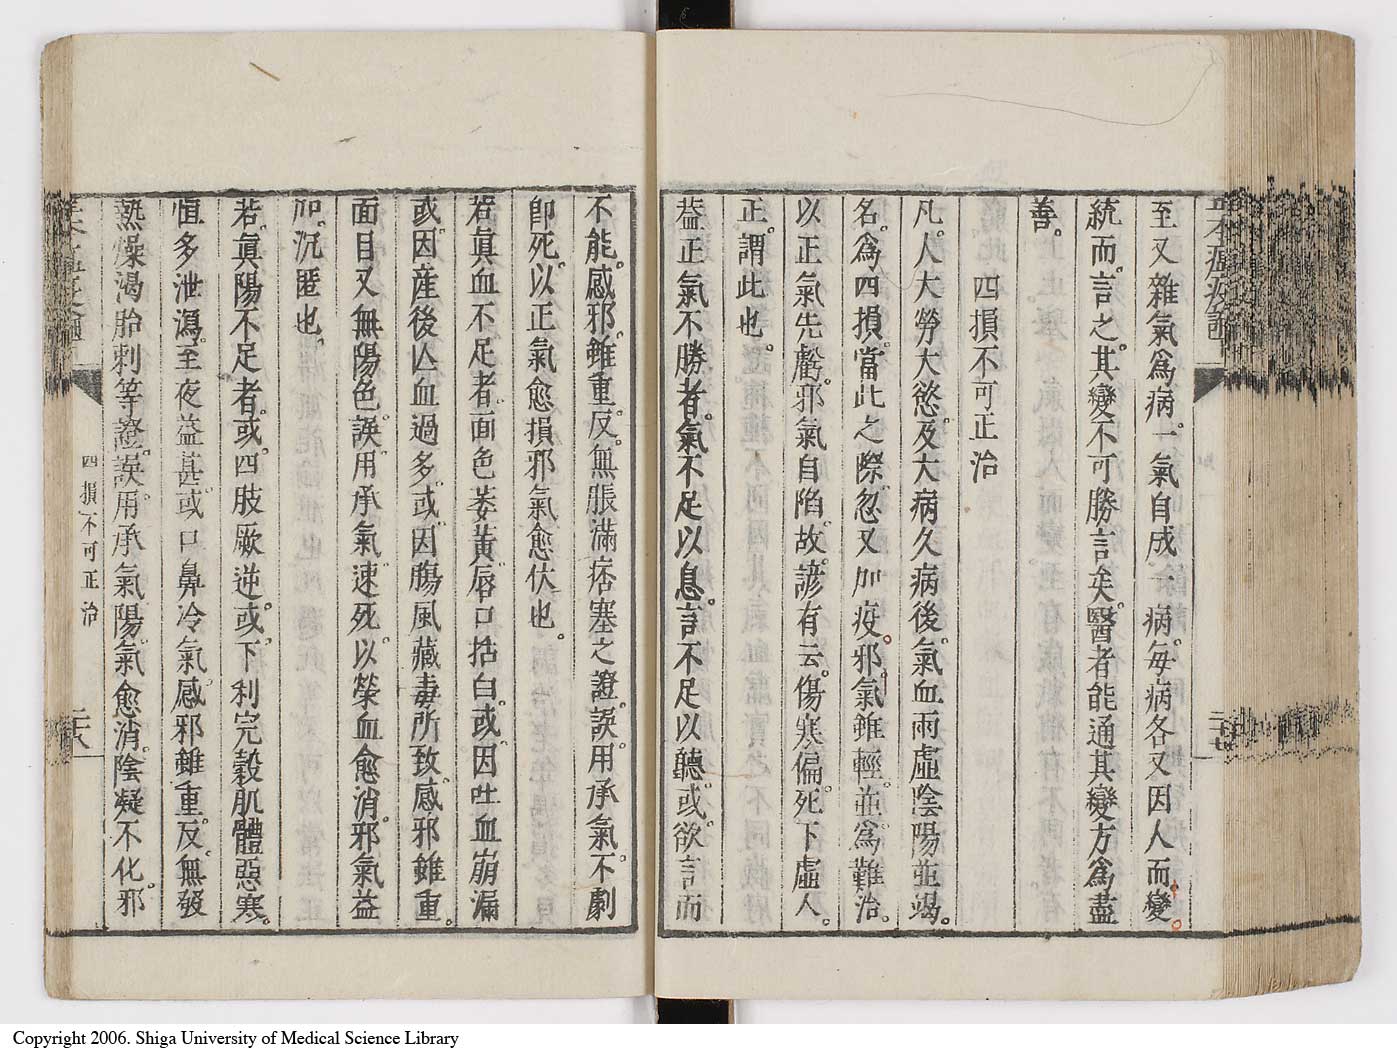 至又雜氣爲病一氣自成一病每病各又因人而變
統而言之其變不可勝言矣醫者能通其變方爲盡
善。
四損不可正治
凡人大勞大慾及大病久病後氣血兩虛陰陽並竭。
名爲四損當此之際忽又加疫邪氣雖輕並爲難治。
以正氣先虧邪氣自陷故諺有云傷寒偏死下虛人。
正謂此也。
葢正氣不勝者氣不足以息言不足以聽或欲言而
不能感邪雖重反無脹滿痞塞之證誤用承氣不劇
卽死以正氣愈損邪氣愈伏也。
若眞血不足者面色萎黃唇口括白或因吐血崩漏
或因産後亾血過多或因腸風藏毒所致感邪雖重。
面目又無陽色誤用承氣速死以榮血愈消邪氣益
加沉匿也。
若眞陽不足者或四肢厥逆或下利完穀肌體惡寒。
恒多泄瀉至夜益甚或口鼻冷氣感邪雖重反無發
熱燥渴胎刺等證誤用承氣陽氣愈消陰凝不化邪
四損不可正治
Copyright 2006. Shiga University of Medical Science Library